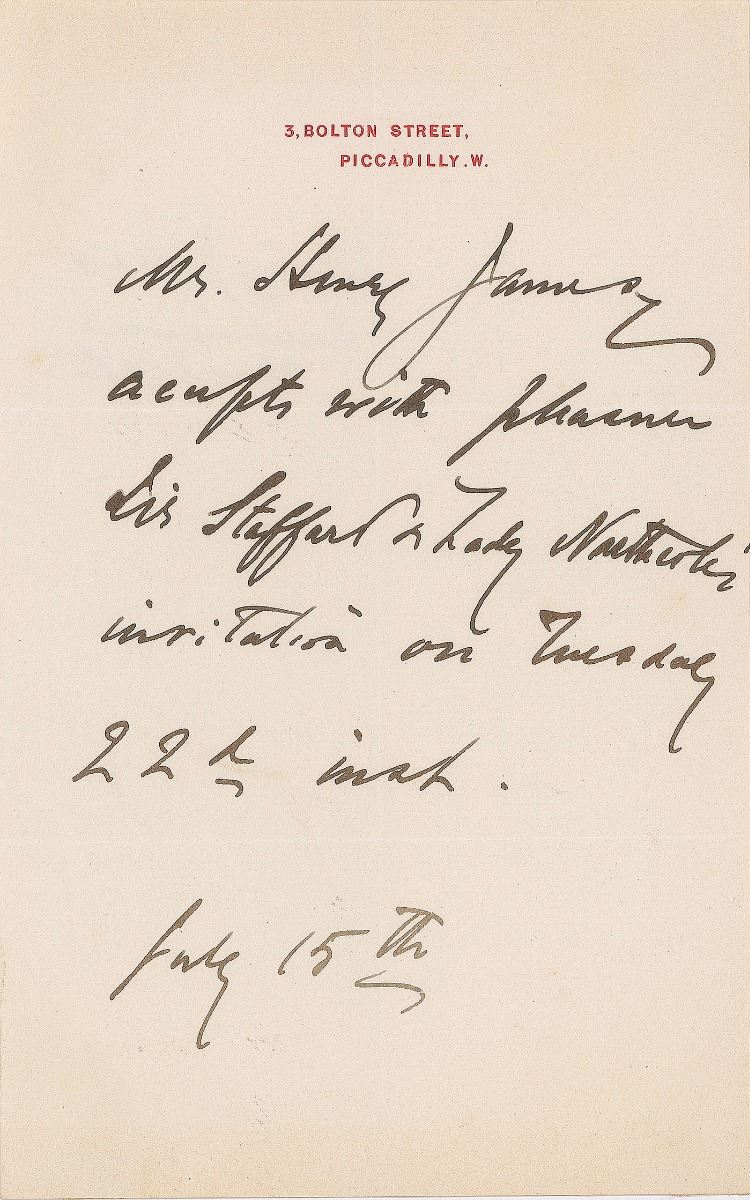 3, BOLTON STREET,
PICCADILLY. W.
Mr. Henry James
accepts with pleasure
Sir Stafford & Lady Northcote's
invitation on Tuesday
22d inst.
July 15th